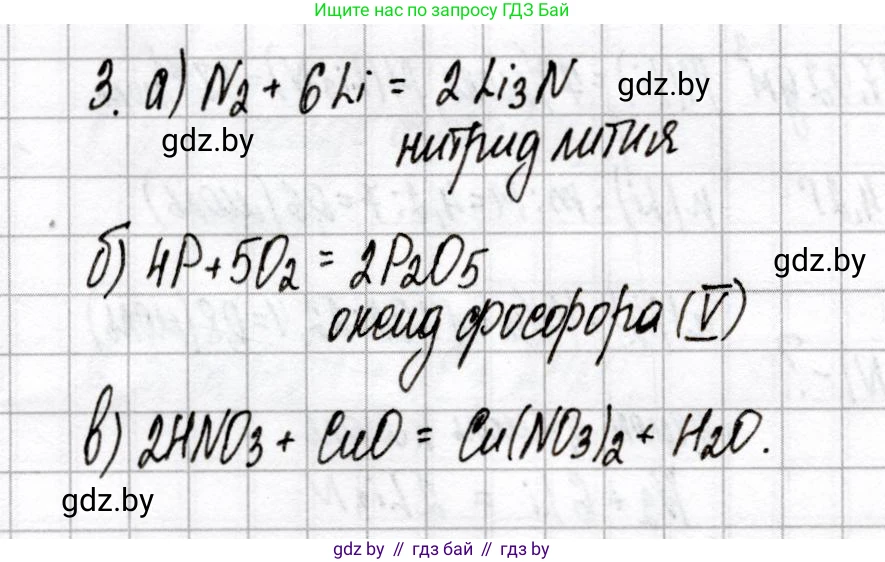 Ищите нас по запросу ГДЗ Бай
3. а) N₂ + 6Li = 2Li₃N
gdz.by
gdz.by
нитрид лития
б) 4P + 5O₂ = 2P₂O₅
gdz.by
оксид фосфора (V)
в) 2HNO₃ + CuO = Cu(NO₃)₂ + H₂O.
gdz.by
gdz by // гдз бай // гдз by